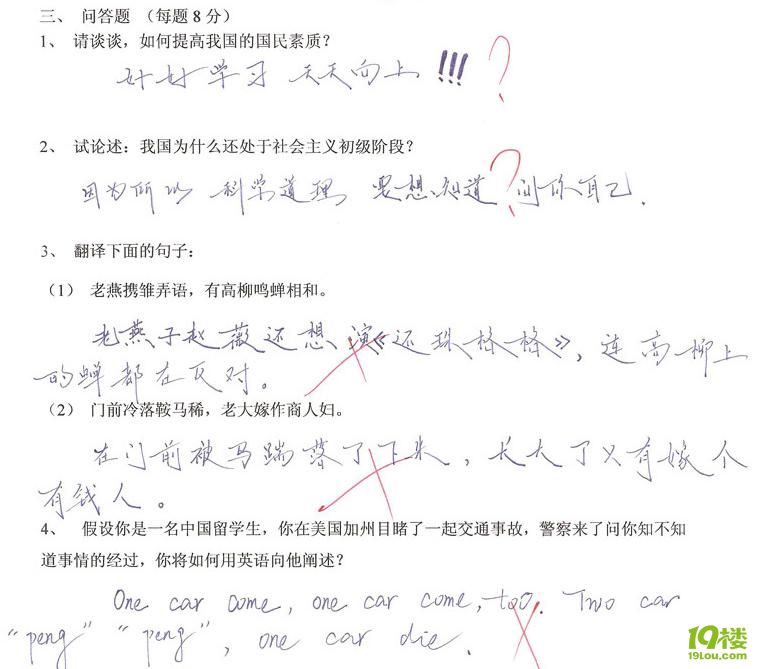 三、 问答题 （每题 8 分）
1、 请谈谈，如何提高我国的国民素质？
好好学习 天天向上 !!! ?
2、 试论述：我国为什么还处于社会主义初级阶段？
因为所以 科学道理 要想知道 ? 问你自己.
3、 翻译下面的句子：
（1） 老燕携雏弄语，有高柳鸣蝉相和。
老燕子赵薇还想演《还珠格格》，连高柳上
的蝉都在反对。
（2） 门前冷落鞍马稀，老大嫁作商人妇。
在门前被马踹落了下来，长大了只有嫁个
有钱人。
4、 假设你是一名中国留学生，你在美国加州目睹了一起交通事故，警察来了问你知不知
道事情的经过，你将如何用英语向他阐述？
One car come, one car come, too. Two car
“peng” “peng”, one car die.
19楼
19lou.com